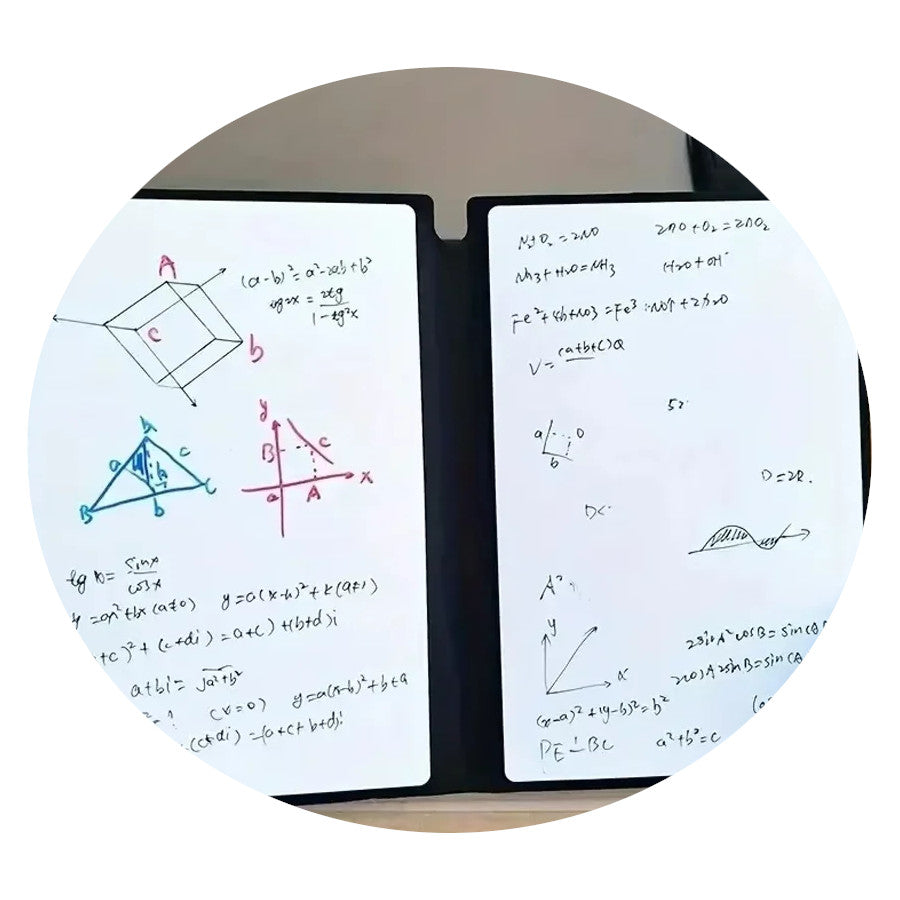 A
C
b
(a-b)²=a²-2ab+b²
tg2x = 2tg
1-tg²x
a
c
h
B
b
C
y
B
c
a
A
x
tg x = sinx
cosx
y=ax²+bx(a≠0) y=a(x-h)²+k(a≠1)
+c)²+(c+di)=a+c)+(b+d)i
a+bi=√a²+b²
(x=0) y=a(x-b)²+b+a
(c+di)=(a+c+b+d)i
N₂+O₂=2NO 2NO+O₂=2NO₂
NH₃+H₂O=NH₃ H₂O+OH⁻
V=(a+b+c)Q
52
a
D
b
D=2R.
D<
A²
y
x
2sinA²cosB=sin(A
2cosAsinB=sin(A
(x-a)²+(y-b)²=b²
PE⊥BC a²+b²=c